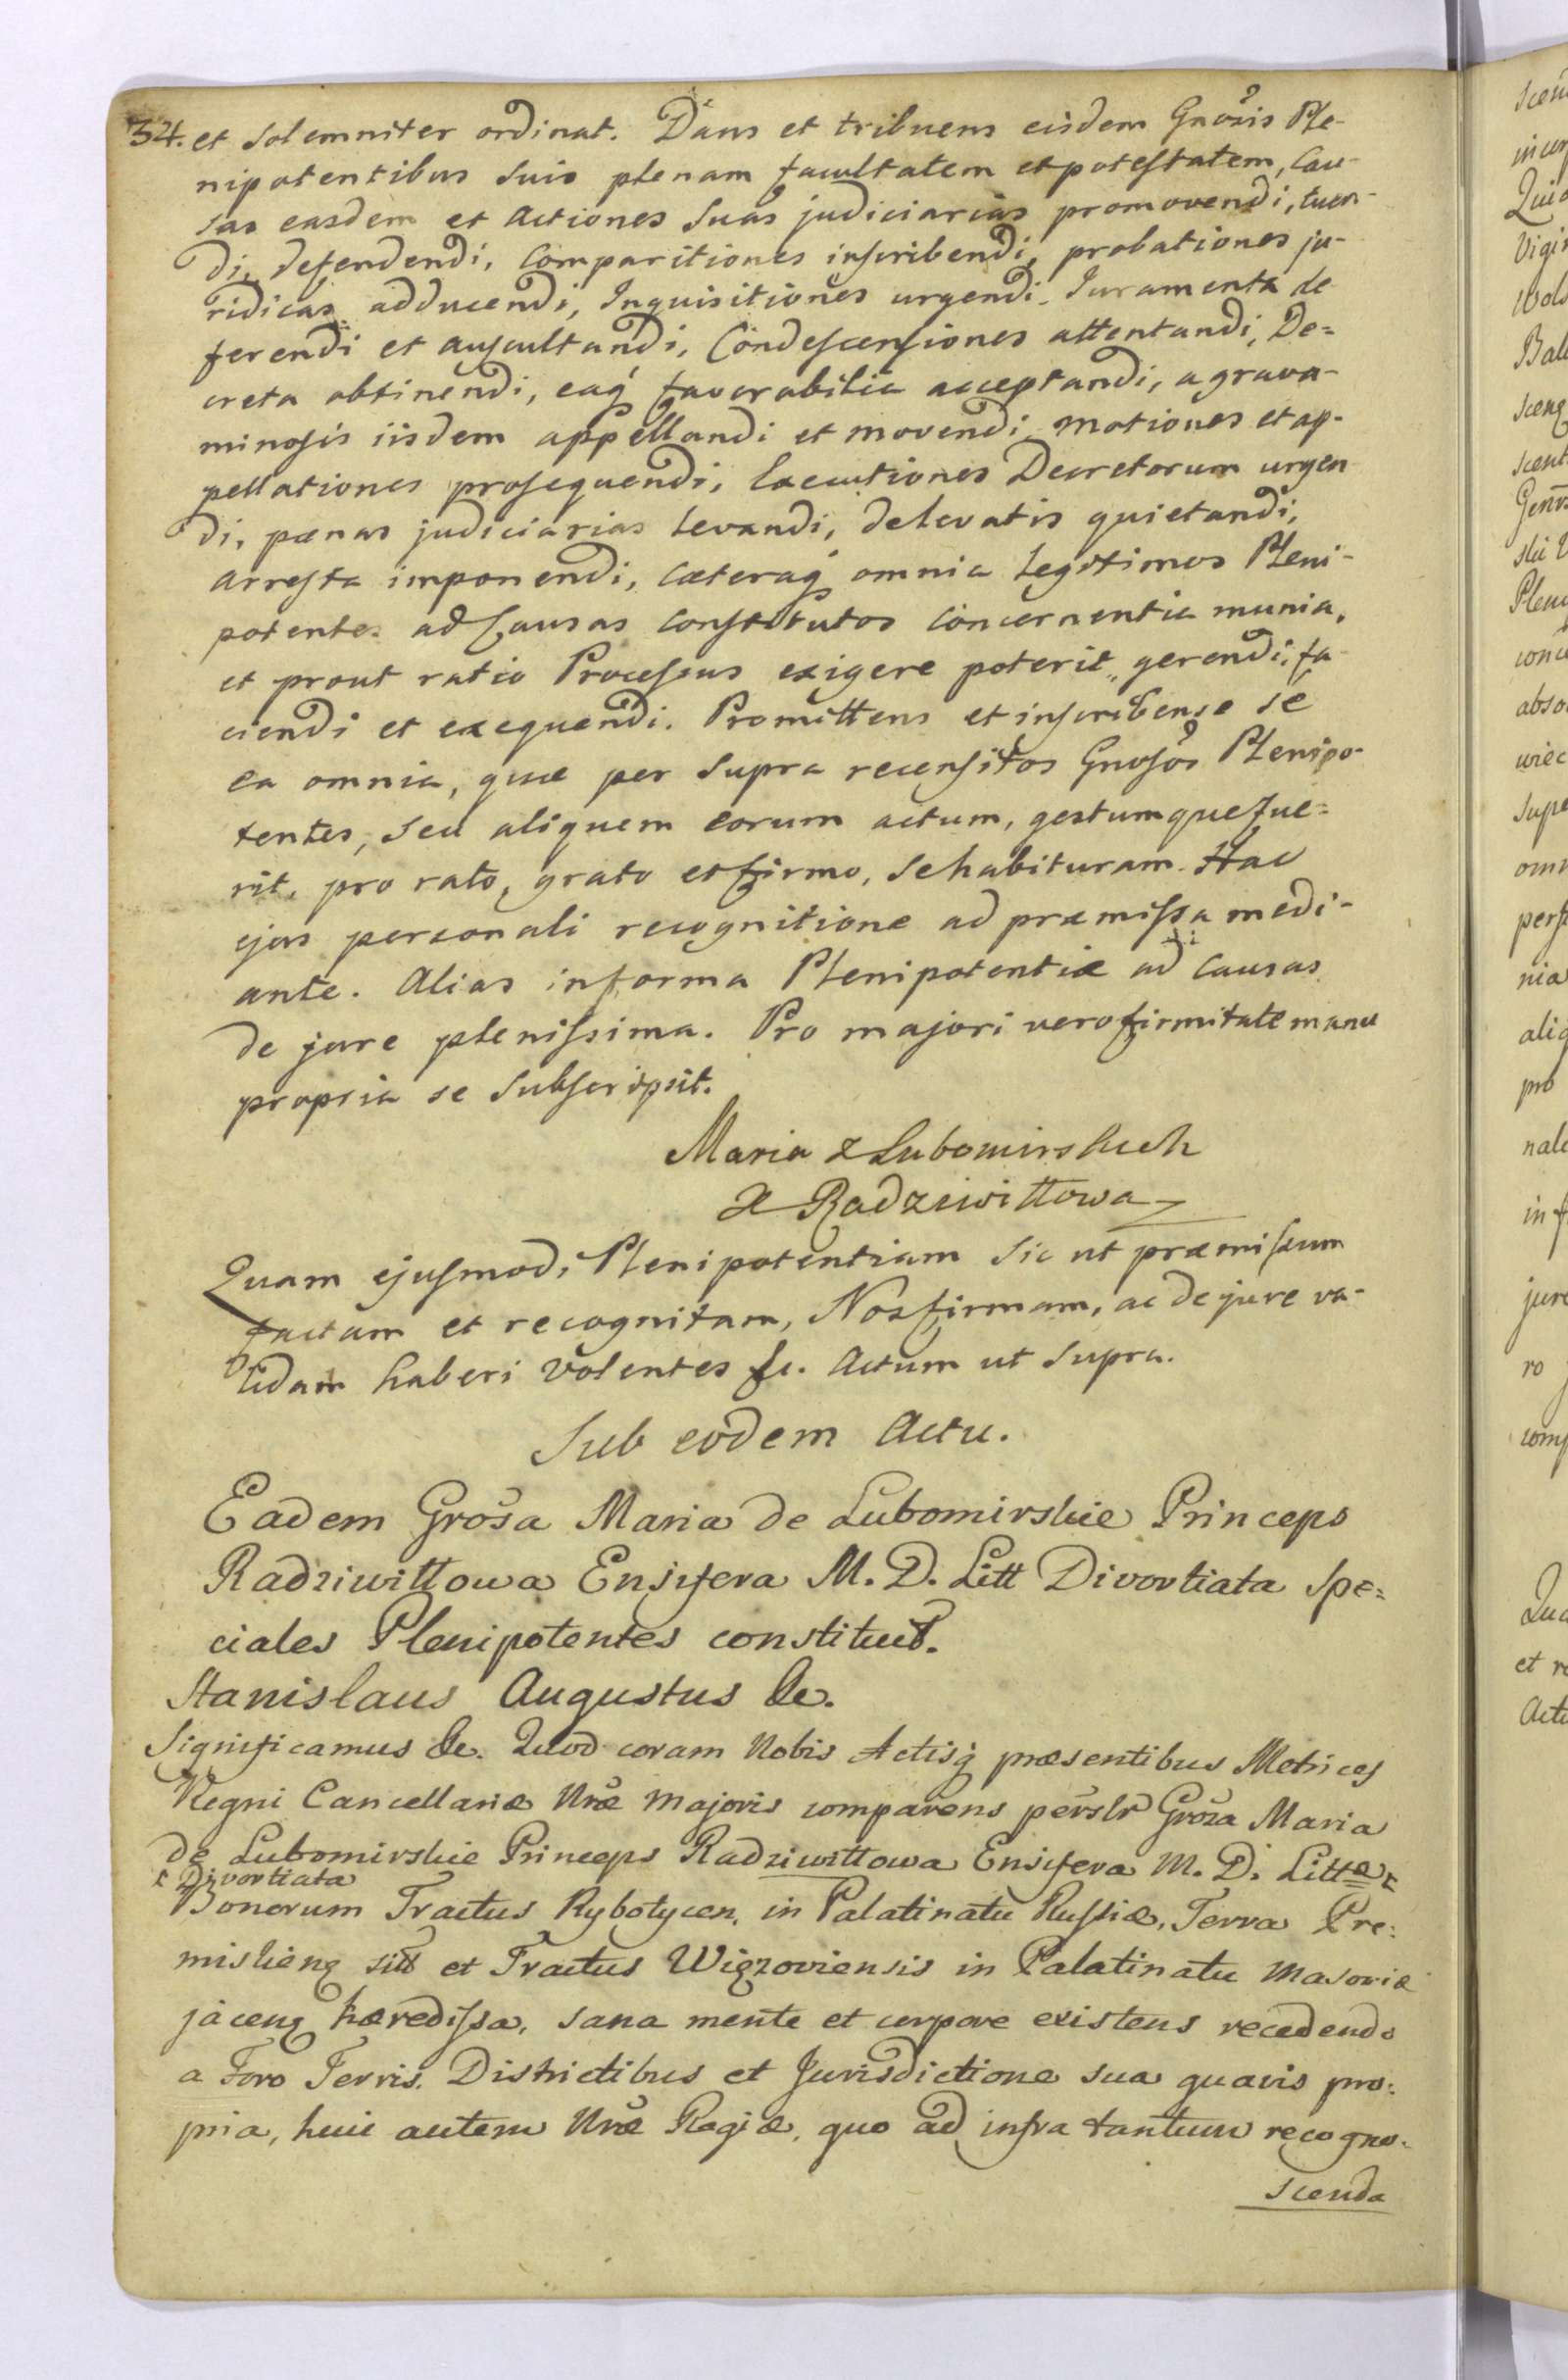 34. et Solemniter ordinat. Dans et tribuens eisdem Gnosis Ple-
nipotentibus Suis plenam facultatem et potestatem, Cau-
sas easdem et Actiones Suas judiciarias promovendi, tuen-
di, defendendi, Comparitiones inscribendi, probationes ju-
ridicas adducendi, Inquisitiones urgendi, Juramenta de
ferendi et auscultandi, Condescensiones attentandi, De=
creta obtinendi, eaq favorabilia acceptandi, a grava-
minosis iisdem appellandi et movendi, motiones et ap-
pellationes prosequendi, Executiones Decretorum urgen
di, pænas judiciarias levandi, de levatis quietandi,
arresta imponendi, Cæteraq omnia Legitimos Pleni-
potentes ad Causas Constitutos Concernentia munia,
et prout ratio Processus exigere poterit, gerendi, fa-
ciendi et exequendi. Promittens et inscribens se
ea omnia, quæ per Supra recensitos Gnosos Plenipo-
tentes, Seu aliquem eorum actum, gestumque fue=
rit, pro rato, grato et firmo, se habituram. Hac
ejus personali recognitione ad præmissa medi-
ante. Alias in forma Plenipotentiæ ad Causas
de jure plenissima. Pro majori vero firmitate manu
propria se Subscripsit.
Maria z Lubomirskich
X Radziwiłłowa
Quam ejusmodi Plenipotentiam Sic ut præmissum
factam et recognitam, Nos firmam, ac de jure va-
lidam haberi Volentes &c. Actum ut Supra.
Sub eodem Actu.
Eadem Grosa Maria de Lubomirskie Princeps
Radziwiłłowa Ensifera M. D. Litt Divortiata Spe=
ciales Plenipotentes constituit.
Stanislaus Augustus &c.
Significamus &c. Quod coram Nobis Actisq præsentibus Metrices
Regni Cancellariæ Nræ Majoris comparens perslr Groza Maria
de Lubomirskie Princeps Radziwiłłowa Ensifera M. D. Littæ
Divortiata
Bonorum Tractus Rybotycen. in Palatinatu Russiæ, Terra Pre=
mislienq sit et Tractus Wiązoviensis in Palatinatu Masoviæ
jacenq hæredissa, sana mente et corpore existens recedendo
a Foro Terris. Districtibus et Jurisdictione sua quavis pro=
pria, huic autem Nræ Regiæ, quo ad infra tantum recogno.
scenda